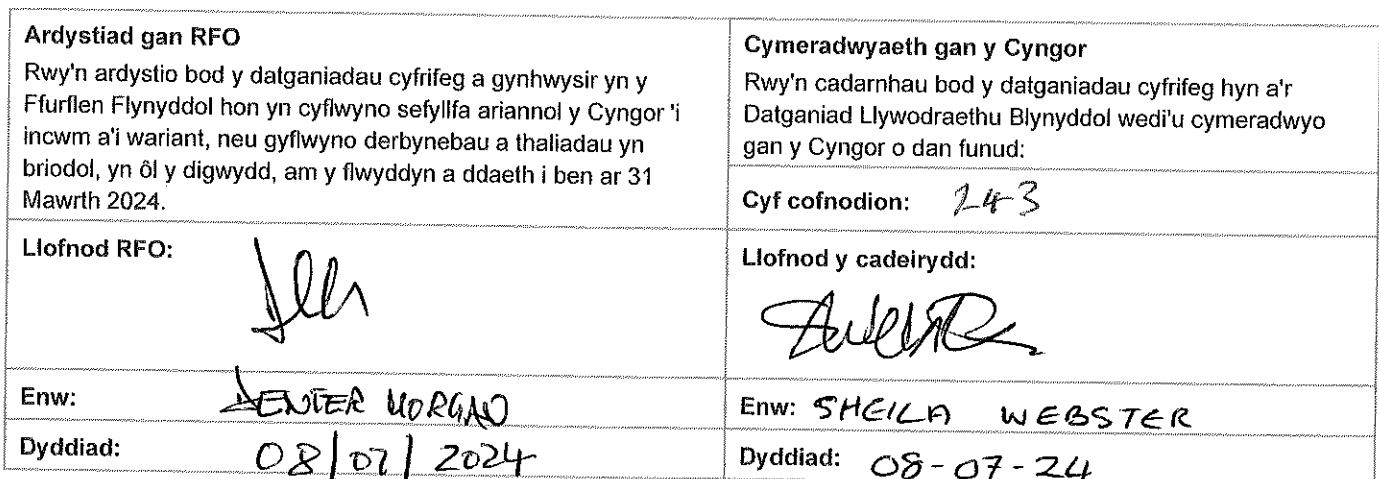 Ardystiad gan RFO
Rwy'n ardystio bod y datganiadau cyfrifeg a gynhwysir yn y
Ffurflen Flynyddol hon yn cyflwyno sefyllfa ariannol y Cyngor 'i
incwm a'i wariant, neu gyflwyno derbynebau a thaliadau yn
briodol, yn ôl y digwydd, am y flwyddyn a ddaeth i ben ar 31
Mawrth 2024.
Cymeradwyaeth gan y Cyngor
Rwy'n cadarnhau bod y datganiadau cyfrifeg hyn a'r
Datganiad Llywodraethu Blynyddol wedi'u cymeradwyo
gan y Cyngor o dan funud:
Cyf cofnodion: 243
Llofnod RFO:
Llofnod y cadeirydd:
Enw: MORGAN
Enw: SHEILA WEBSTER
Dyddiad: 08/07/2024
Dyddiad: 08-07-24